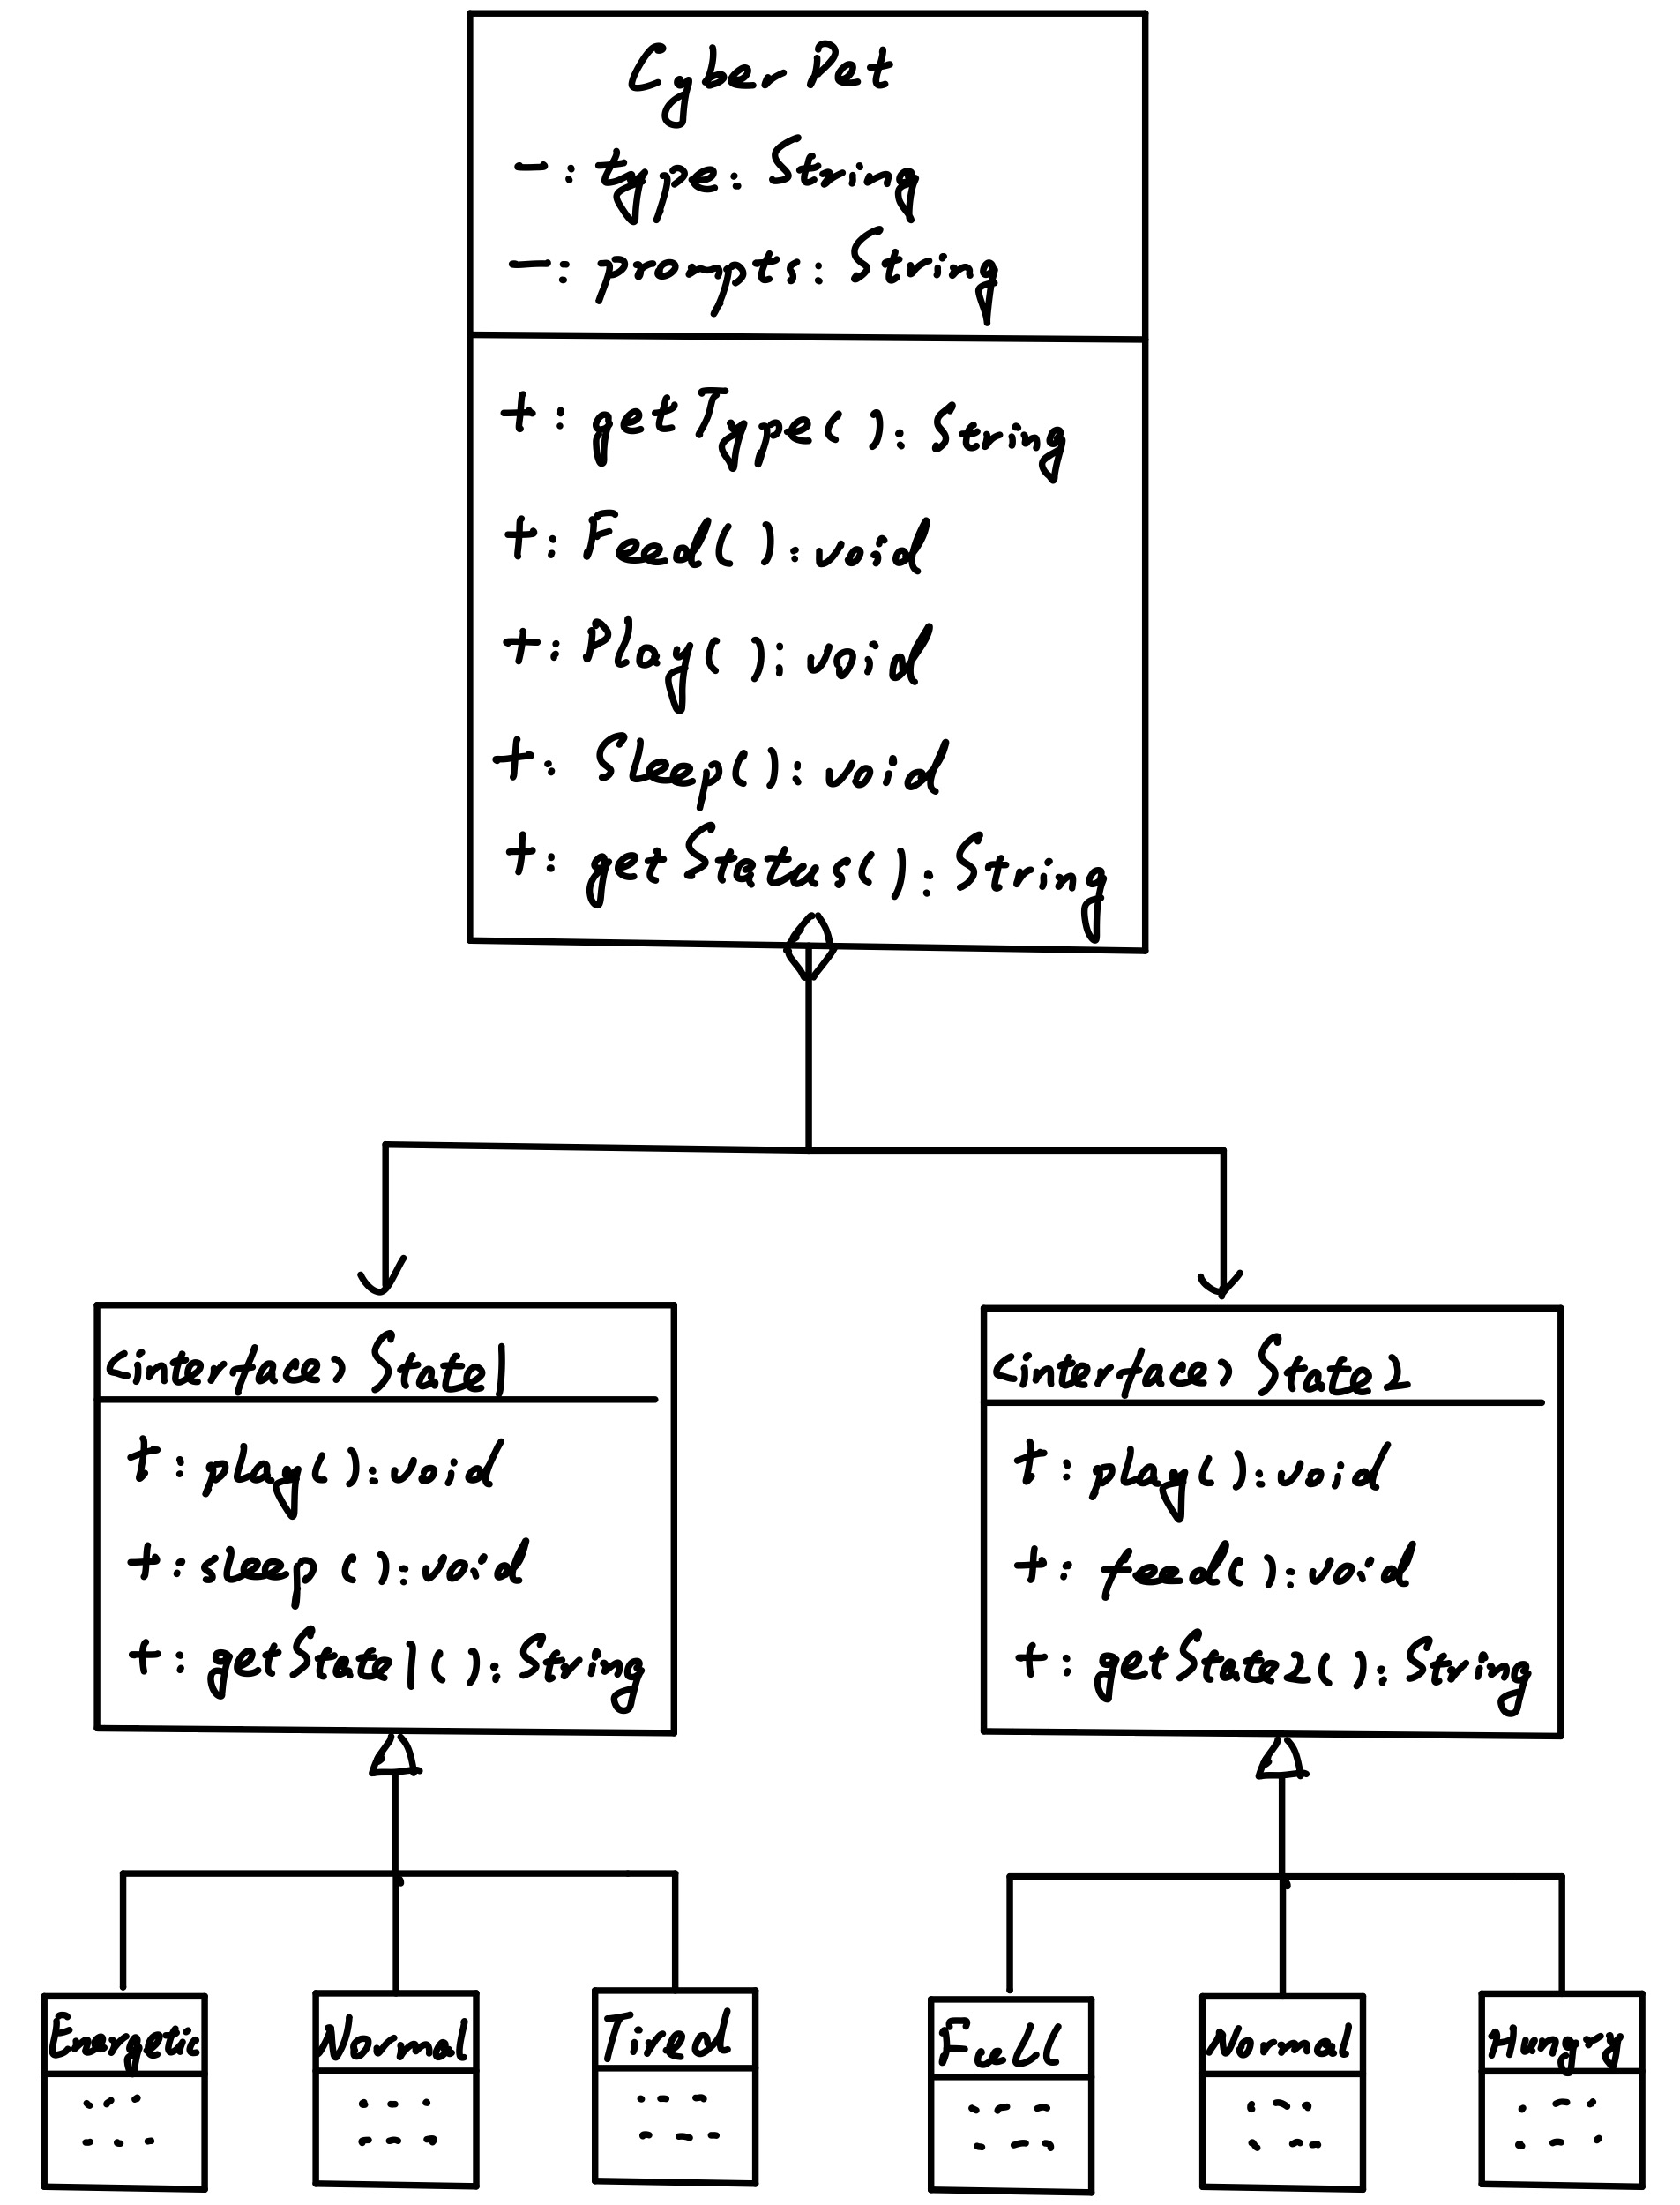 Cyber Pet
-: type: String
-: prompts: String
+: getType(): String
+: Feed(): void
+: Play(): void
+: Sleep(): void
+: getStatus(): String
<interface> State1
+: play(): void
+: sleep(): void
+: getState1(): String
<interface> State2
+: play(): void
+: feed(): void
+: getState2(): String
Energetic
Normal
Tired
Full
Normal
Hungry